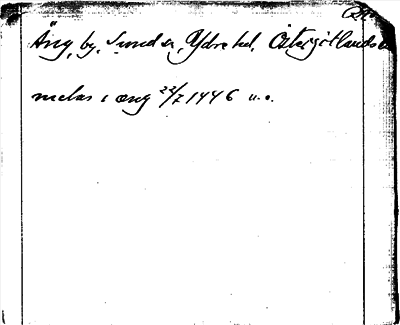 Äng, by, Sund sn, Ydre hd, Östergötlands
melas i æng 22/7 1446 u.o.